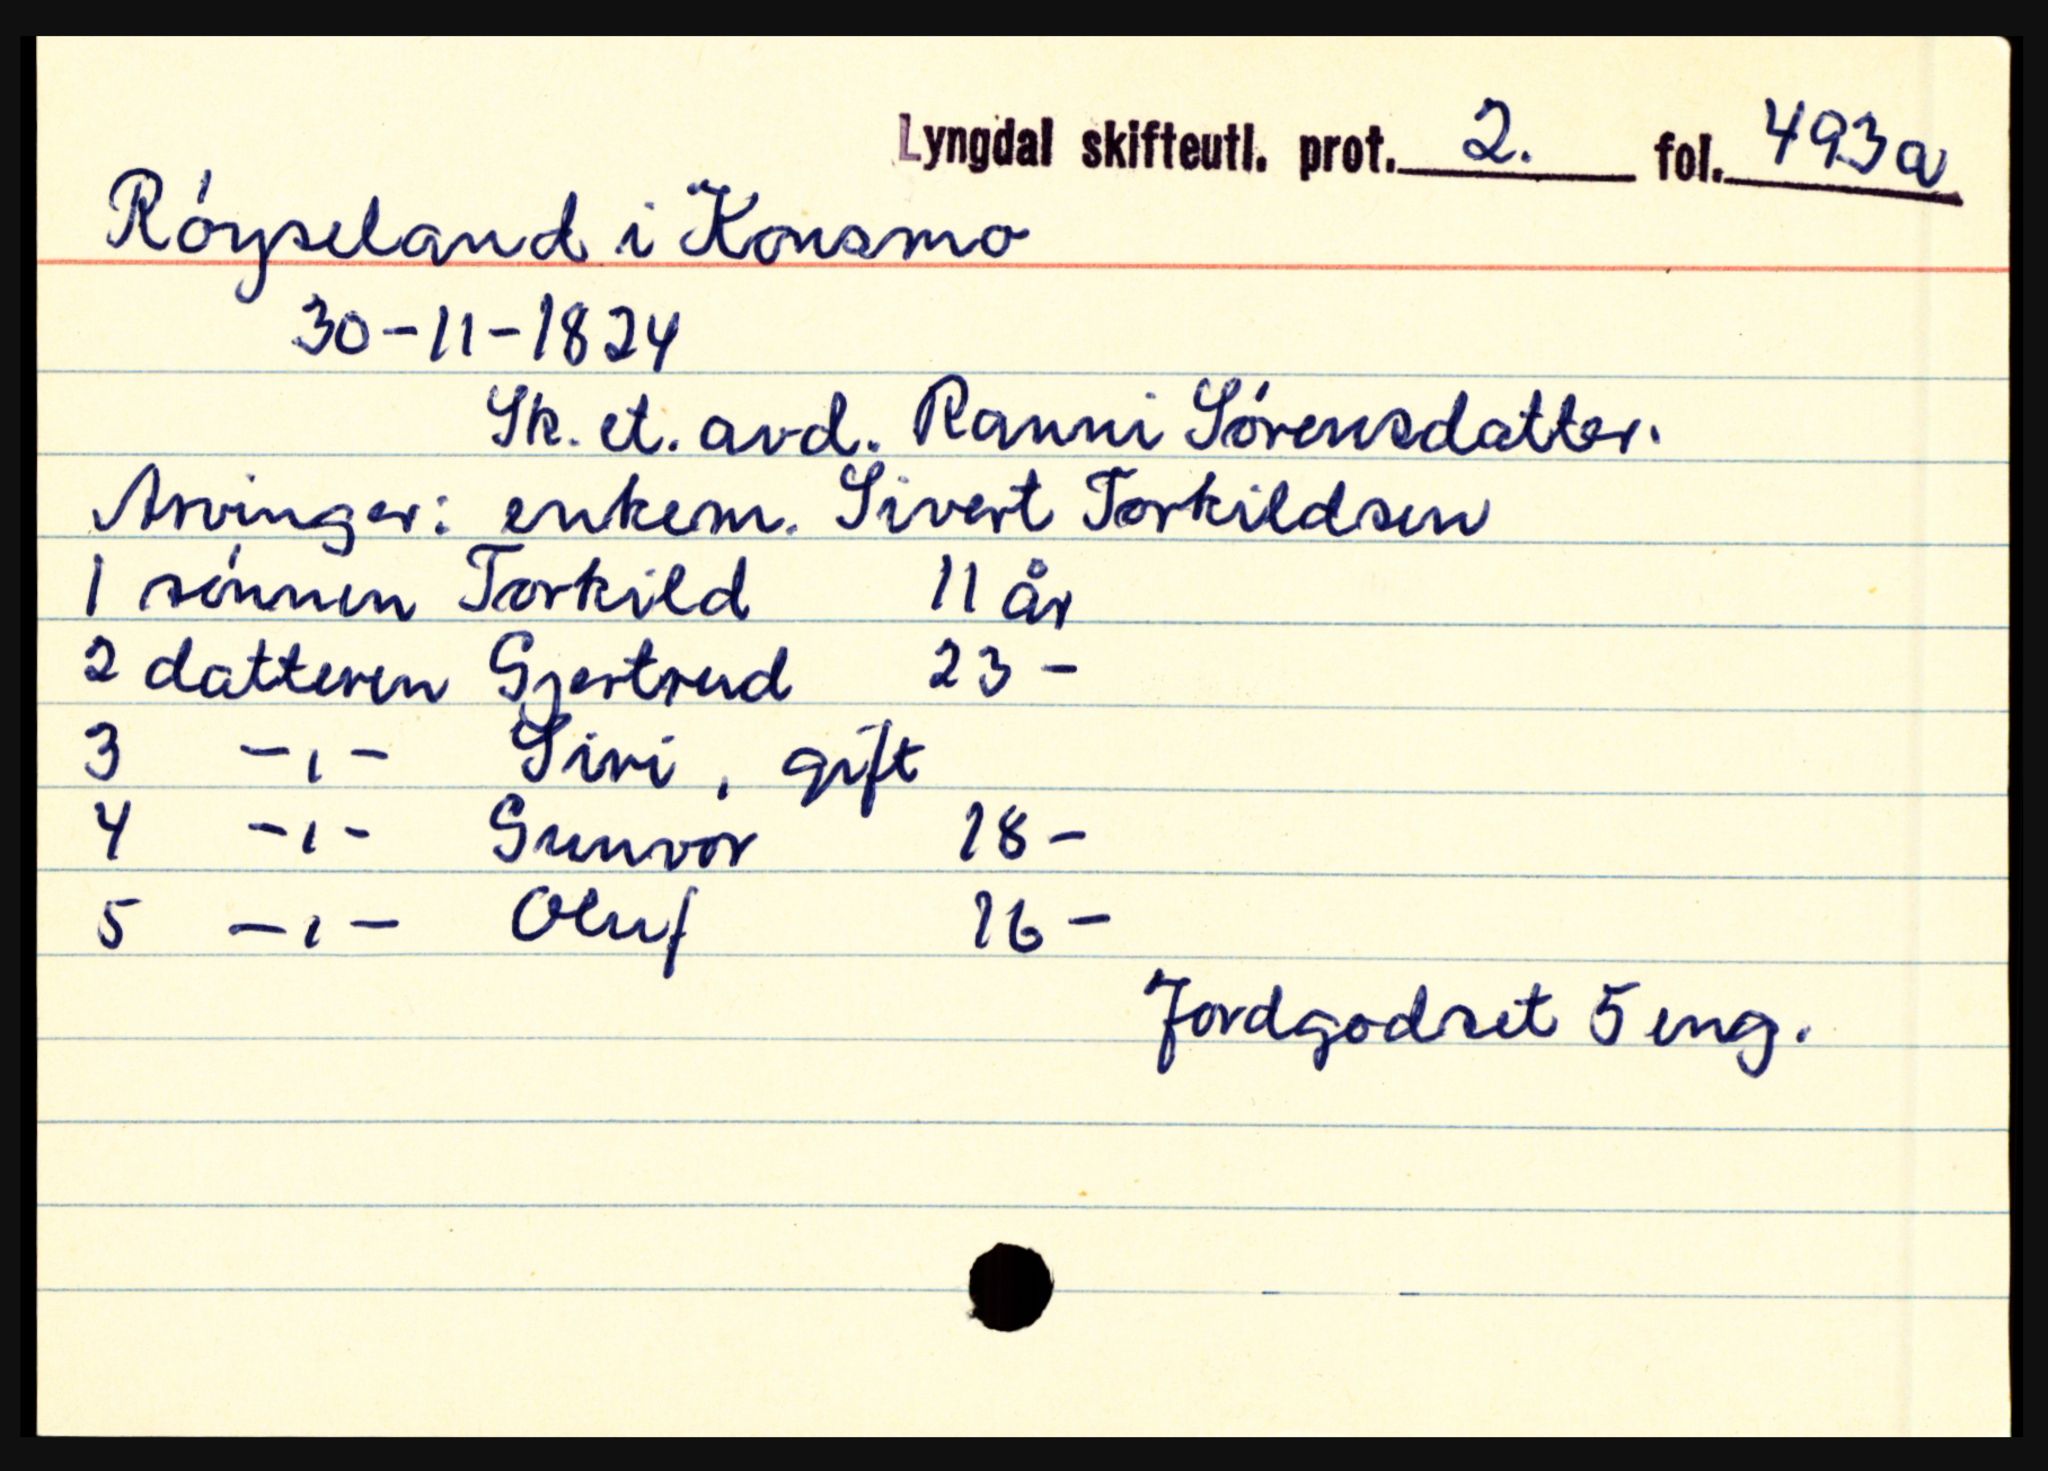 Lyngdal skifteutl. prot. 2. fol. 493a
Róyseland i Konsmo
30-11-1824
Sk. et. avd. Ranni Sórensdatter.
Arvinger: enkem. Sivert Torkildsen
1 sónnen Torkild 11 år
2 datteren Gjertrud 23 -
3 -ı- Siri, gift
4 -ı- Gunvor 18 -
5 -ı- Oluf 16 -
Jordgodset 5 eng.